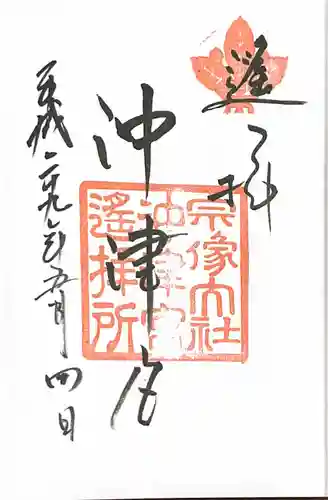 遥拝
沖津宮
平成二十九年五月四日
宗像大社
沖津宮
遙拝所